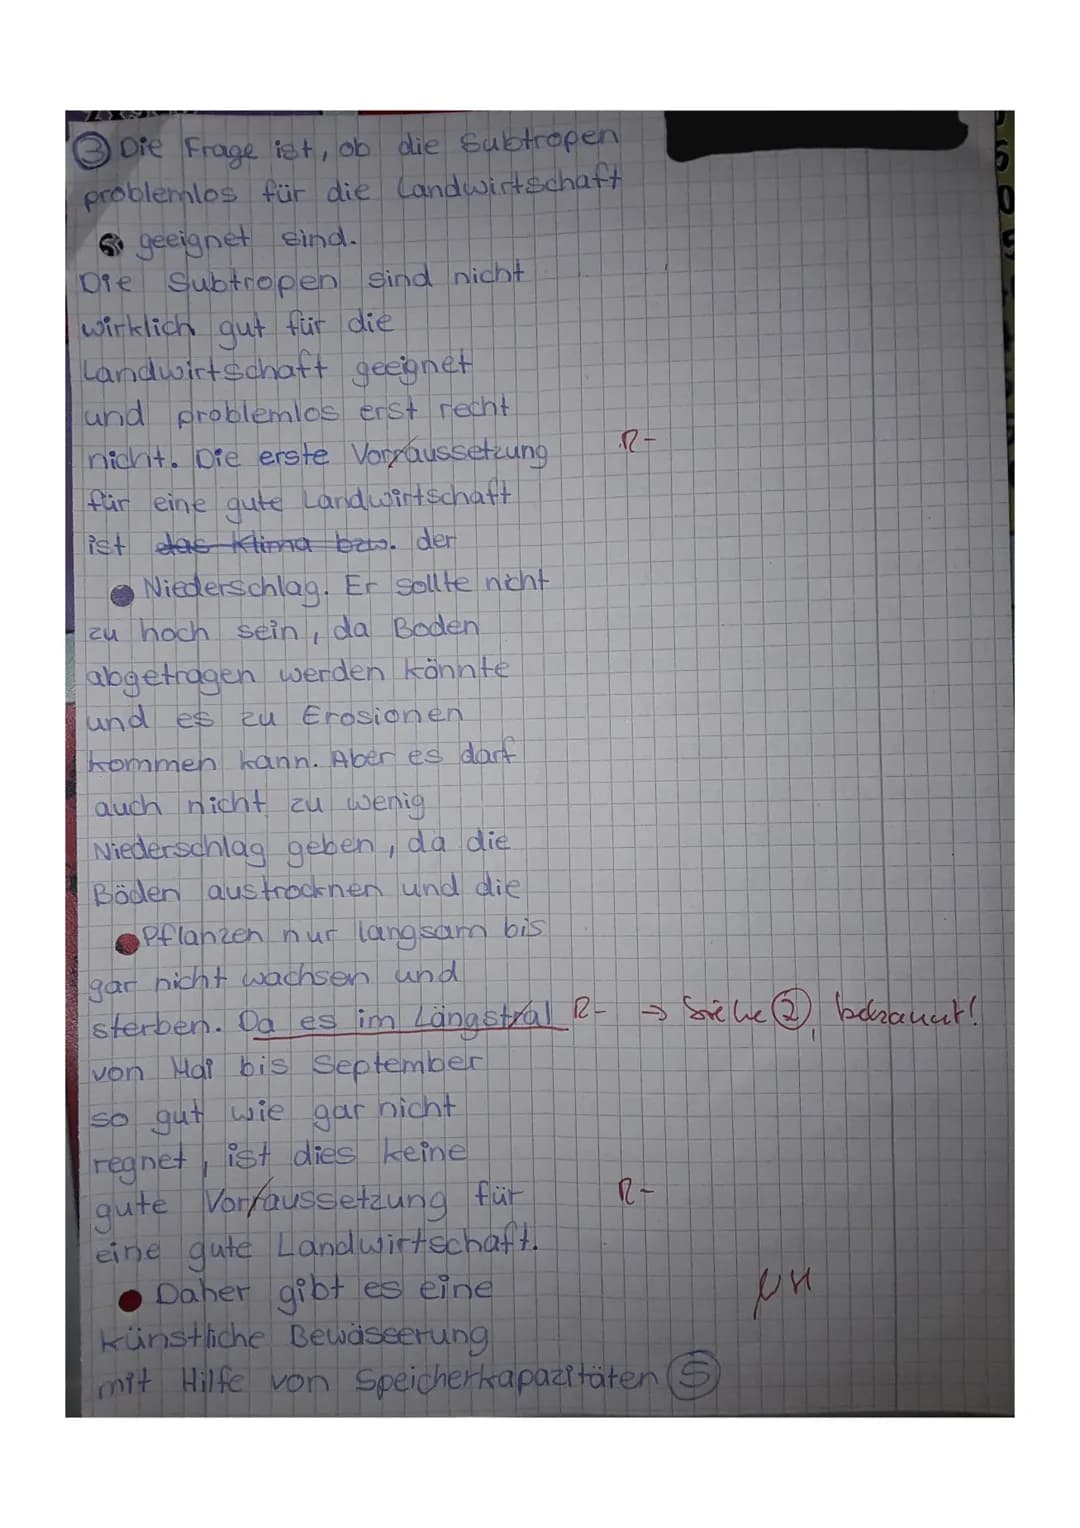 ③ Die Frage ist, ob die Subtropen
problemlos für die Landwirtschaft
geeignet sind.
Die Subtropen sind nicht
wirklich gut für die
Landwirtschaft geeignet
und problemlos erst recht
nicht. Die erste Vorraussetzung R-
für eine gute Landwirtschaft
ist das Klima bzw. der
Niederschlag. Er sollte nicht
zu hoch sein, da Boden
abgetragen werden könnte
und es zu Erosionen
kommen kann. Aber es darf
auch nicht zu wenig
Niederschlag geben, da die
Böden austrocknen und die
Pflanzen nur langsam bis
gar nicht wachsen und
sterben. Da es im Längstral R- → Siehe ②,
von Mai bis September
so gut wie gar nicht
regnet, ist dies keine
gute Vorraussetzung für R-
eine gute Landwirtschaft.
Daher gibt es eine
künstliche Bewässerung
mit Hilfe von Speicherkapazitäten ⑤